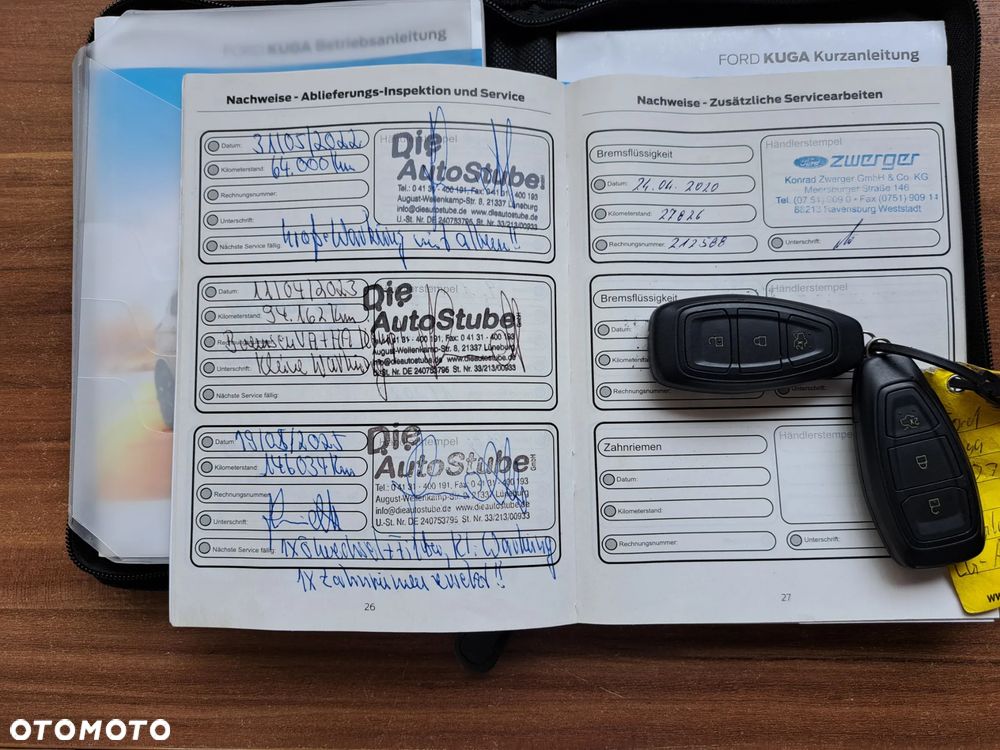 FORD KUGA Betriebsanleitung
FORD KUGA Kurzanleitung
Nachweise - Ablieferungs-Inspektion und Service
Datum: 31/05/2022
Kilometerstand: 64.000 Km
Rechnungsnummer:
Unterschrift:
Nächste Service fällig:
Händlerstempel
Die
AutoStube GmbH
Tel.: 0 41 31 - 400 191, Fax: 0 41 31 - 400 193
August-Wellenkamp-Str. 8, 21337 Lüneburg
info@dieautostube.de www.dieautostube.de
U.-St. Nr. DE 240753795 St. Nr. 33/213/00933
Datum: 11/04/2023
Kilometerstand: 94.162 Km
Unterschrift: Kleine Wartung
Nächste Service fällig:
Die
AutoStube
August-Wellenkamp-Str. 8, 21337 Lüneburg
info@dieautostube.de www.dieautostube.de
U.-St. Nr. DE 240753795 St. Nr. 33/213/00933
Datum
Kilometerstand: 146034 Km
Rechnungsnummer
Unterschrift:
Nächste Service fällig: 1x Ölwechsel + Filter, Kl. Wartung
1x Zahnriemen
Die
AutoStube GmbH
Tel.: 0 41 31 - 400 191, Fax: 0 41 31 - 400 193
August-Wellenkamp-Str. 8, 21337 Lüneburg
info@dieautostube.de www.dieautostube.de
U.-St. Nr. DE 240753795 St. Nr. 33/213/00933
26
Nachweise - Zusätzliche Servicearbeiten
Bremsflüssigkeit
Datum: 24.04.2020
Kilometerstand: 27826
Rechnungsnummer: 212588
Unterschrift:
Händlerstempel
Ford zwerger
Konrad Zwerger GmbH & Co. KG
Meersburger Straße 146
88213 Ravensburg Weststadt
Bremsflüssigkeit
Datum:
Kilometerstand:
Rechnungsnummer:
Unterschrift:
Zahnriemen
Datum:
Kilometerstand:
Rechnungsnummer:
Unterschrift:
Händlerstempel
27
OTOMOTO